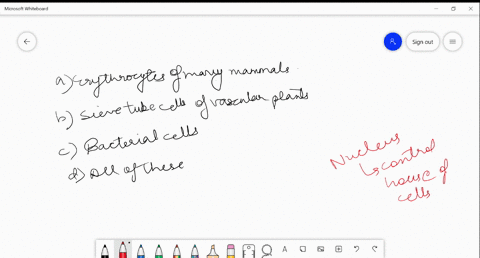 Microsoft Whiteboard
Sign out
a) Erythrocytes of many mammals.
b) Sieve tube cells of vascular plants
c) Bacterial cells
d) All of these
Nucleus
↳ control
house of
cells